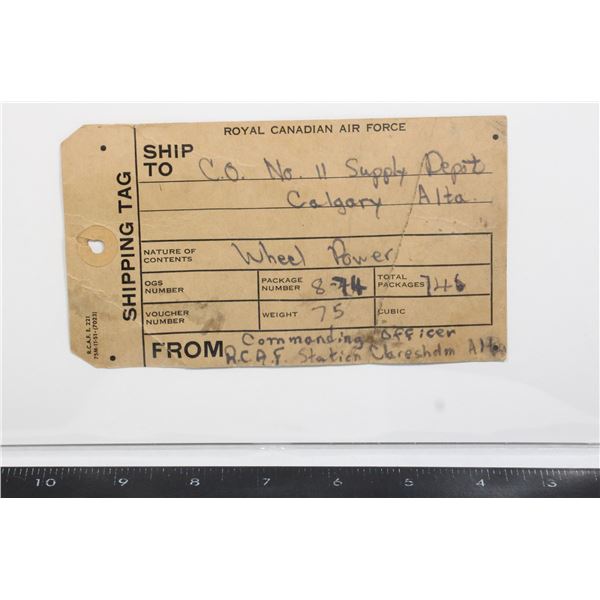 ROYAL CANADIAN AIR FORCE
SHIPPING TAG
R.C.A.F. E. 221
75M-11-51-(7023)
SHIP TO C.O. No. 11 Supply Depot
Calgary Alta.
NATURE OF CONTENTS Wheel Power
OGS NUMBER PACKAGE NUMBER 8-74 TOTAL PACKAGES 746
VOUCHER NUMBER WEIGHT 75 CUBIC
FROM Commanding Officer
R.C.A.F. Station Claresholm Alta
10 9 8 7 6 5 4 3